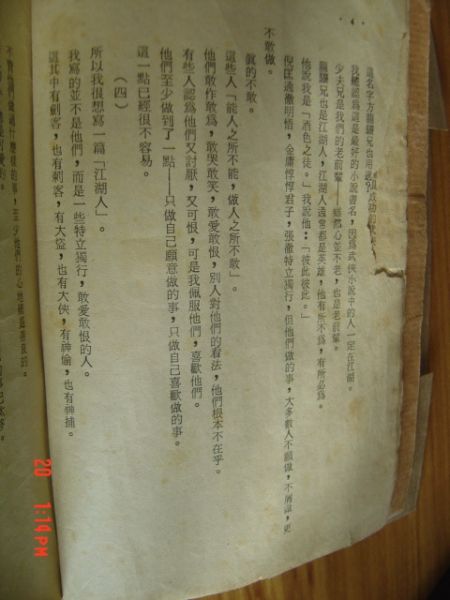 這名字方龍驤兄也用過
我總認爲這是最好的小說書名,因爲武俠小說中的人一定在江湖。
少夫兄是我們的老前輩——雖然心並不老,也是老前輩。
龍驤兄也是江湖人,江湖人通常都是英雄,他有所不爲,有所必爲。
他說我是「酒色之徒。」我說他:「彼此彼此。」
倪匡通徹明悟,金庸惇惇君子,張徹特立獨行,但他們做的事,大多數人不願做,不屑做,更
不敢做。
眞的不敢。
這些人「能人之所不能,做人之所不敢」。
他們敢作敢爲,敢哭敢笑,敢愛敢恨,別人對他們的看法,他們根本不在乎。
有些人認爲他們又討厭,又可恨,可是我佩服他們,喜歡他們。
他們至少做到了一點——只做自己願意做的事,只做自己喜歡做的事。
這一點已經很不容易。
(四)
所以我很想寫一篇「江湖人」。
我寫的並不是他們,而是一些特立獨行,敢愛敢恨的人。
這其中有劍客,也有刺客,有大盜,也有大俠,有神偷,也有神捕。
不管他們做過什麼樣的事,至少他們的心地總是善良的。
20 1:14PM